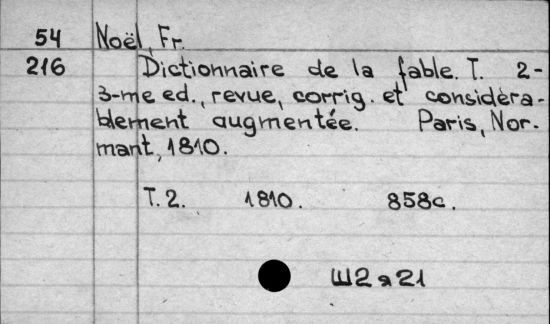 54 Noël, Fr.
216 Dictionnaire de la fable. T. 2-
3-me ed., revue, corrig. et considèra-
blement augmentée. Paris, Nor-
mant, 1810.
T. 2. 1810. 858c.
Ш2я21